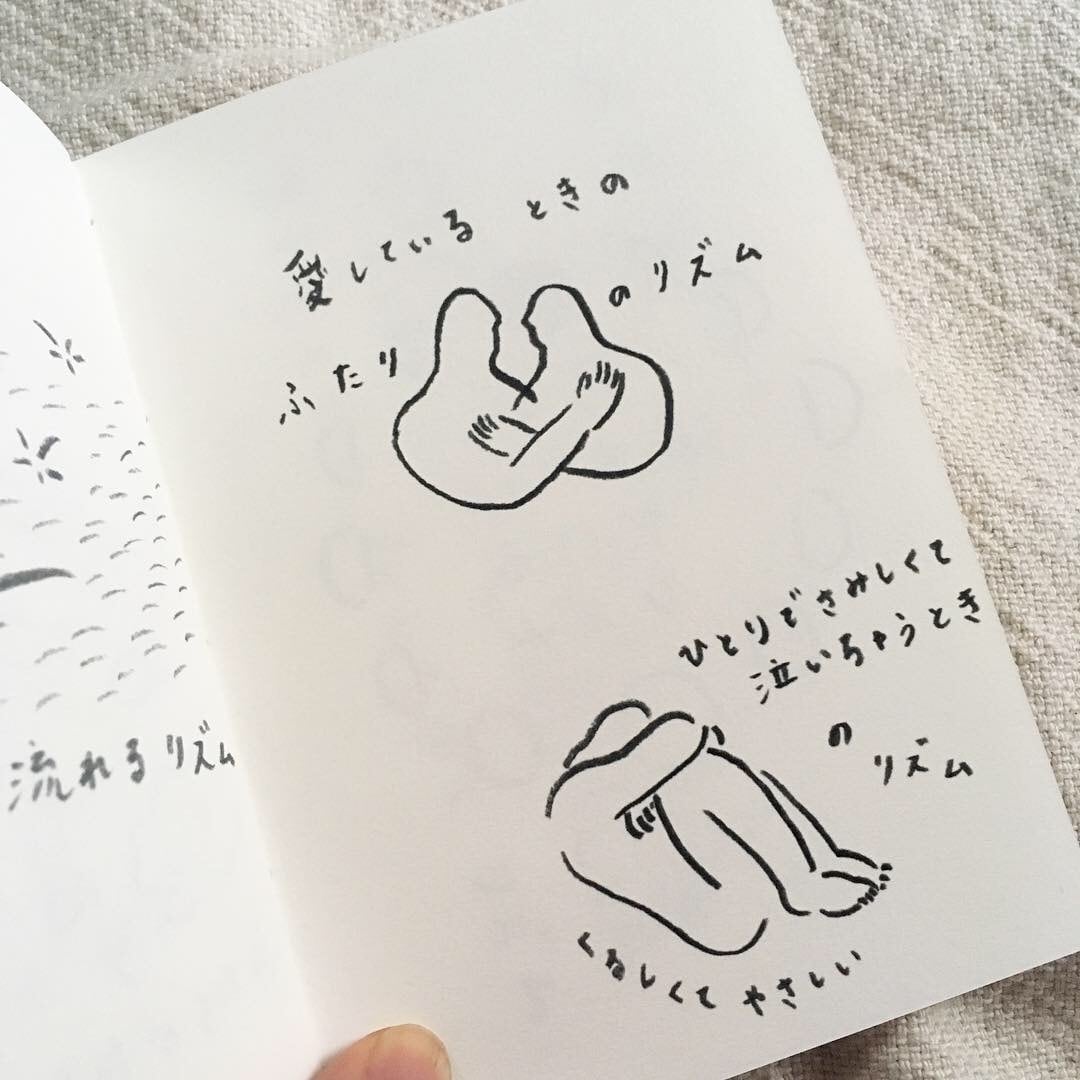 流れるリズム
愛しているときの
ふたりのリズム
ひとりでさみしくて
泣いちゃうとき
の
リズム
くるしくてやさしい